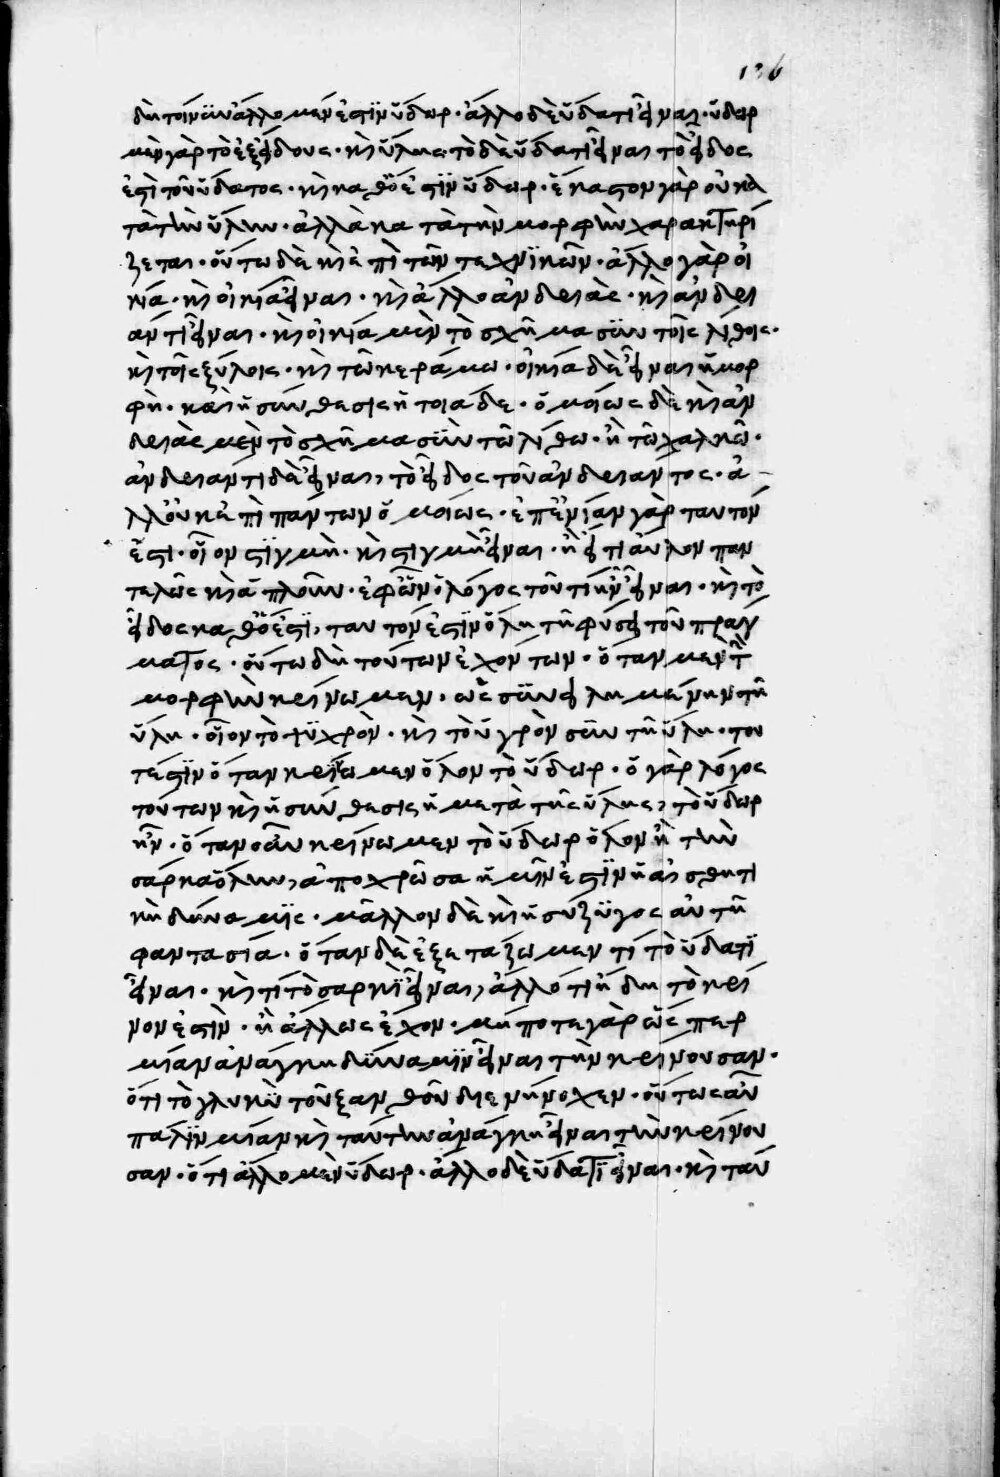 136
δὴ τοίνυν ἄλλο μέν ἐστιν ὕδωρ· ἄλλο δὲ ὕδατι εἶναι· ὕδωρ
μὲν γὰρ τὸ ἐξ εἴδους· κὶ ὕλης· τὸ δὲ ὕδατι εἶναι τὸ εἶδος
ἐστὶ τοῦ ὕδατος· κὶ καθὅ ἐστὶν ὕδωρ· ἕκαστον γὰρ οὐ κα
τὰ τὴν ὕλην· ἀλλὰ κατὰ τὴν μορφὴν χαρακτηρί
ζεται· οὕτω δὲ κὶ ἐπὶ τῶν τεχνικῶν· ἄλλο γὰρ οἰ
κία· κὶ οἰκία εἶναι· κὶ ἄλλο ἀνδριὰς· κὶ ἀνδρι
άντι εἶναι· κὶ οἰκία μὲν τὸ σχῆμα σὺν τοῖς λίθοις·
κὶ τοῖς ξύλοις· κὶ τῶ κεράμω· οἰκία δὲ εἶναι ἡ μορ
φὴ· καὶ ἡ σύνθεσις ἡ τοιάδε· ὁμοίως δὲ κὶ ἀν
δριὰς μὲν τὸ σχῆμα σὺν τῶ λίθω· ἢ τῶ χαλκῶ·
ἀνδριάντι δὲ εἶναι, τὸ εἶδος τοῦ ἀνδριάντος· ἀ
λλ' οὐκ ἐπὶ πάντων ὁμοίως· ἐπ' ἐνίων γὰρ ταυτόν
ἐστι· οἷον στιγμὴ· κὶ στιγμῆ εἶναι· ἢ εἴ τι ἄυλον παν
τελῶς κὶ ἁπλοῦν· ἐφ' ὧν ὁ λόγος τοῦ τί ἦν εἶναι· κὶ τὸ
εἶδος καθὅ ἐστὶ, ταυτόν ἐστιν ὅλη τῆ φύσει τοῦ πράγ
ματος· οὕτω δὴ τούτων ἐχόντων· ὅταν μὲν τὴν
μορφὴν κρίνωμεν· ὡς συνειλημμένην τῆ
ὕλη· οἷον τὸ ψυχρὸν· κὶ τὸ ὑγρὸν σὺν τῆ ὕλη· του
τέστιν ὅταν κρίνωμεν ὅλον τὸ ὕδωρ· ὁ γὰρ λόγος
τούτων κὶ ἡ σύνθεσις ἡ μετὰ τῆς ὕλης, τὸ ὕδωρ
ἦν· ὅταν οὖν κρίνωμεν τὸ ὕδωρ ὅλον ἢ τὴν
σάρκα ὅλην, ἀποχρῶσα ἡμῖν ἐστὶν ἡ αἰσθητι
κὴ δύναμις· μᾶλλον δὲ κὶ ἡ σύζυγος αὐτῆ
φαντασία· ὅταν δὲ ἐξετάζωμεν τί τὸ ὕδατι
εἶναι· κὶ τί τὸ σαρκὶ εἶναι, ἄλλο τι ἤδη τὸ κρῖ
νον ἐστὶν· ἢ ἄλλως ἔχον· μήποτε γὰρ ὥσπερ
μίαν ἀνάγκη δύναμιν εἶναι τὴν κρίνουσαν·
ὅτι τὸ γλυκὺ τοῦ ξανθοῦ διενήνοχεν· οὕτως αὖ
πάλιν μίαν κὶ ταύτην ἀνάγκη εἶναι τὴν κρίνου
σαν· ὅτι ἄλλο μὲν ὕδωρ· ἄλλο δὲ ὕδατι εἶναι· κὶ ταύ